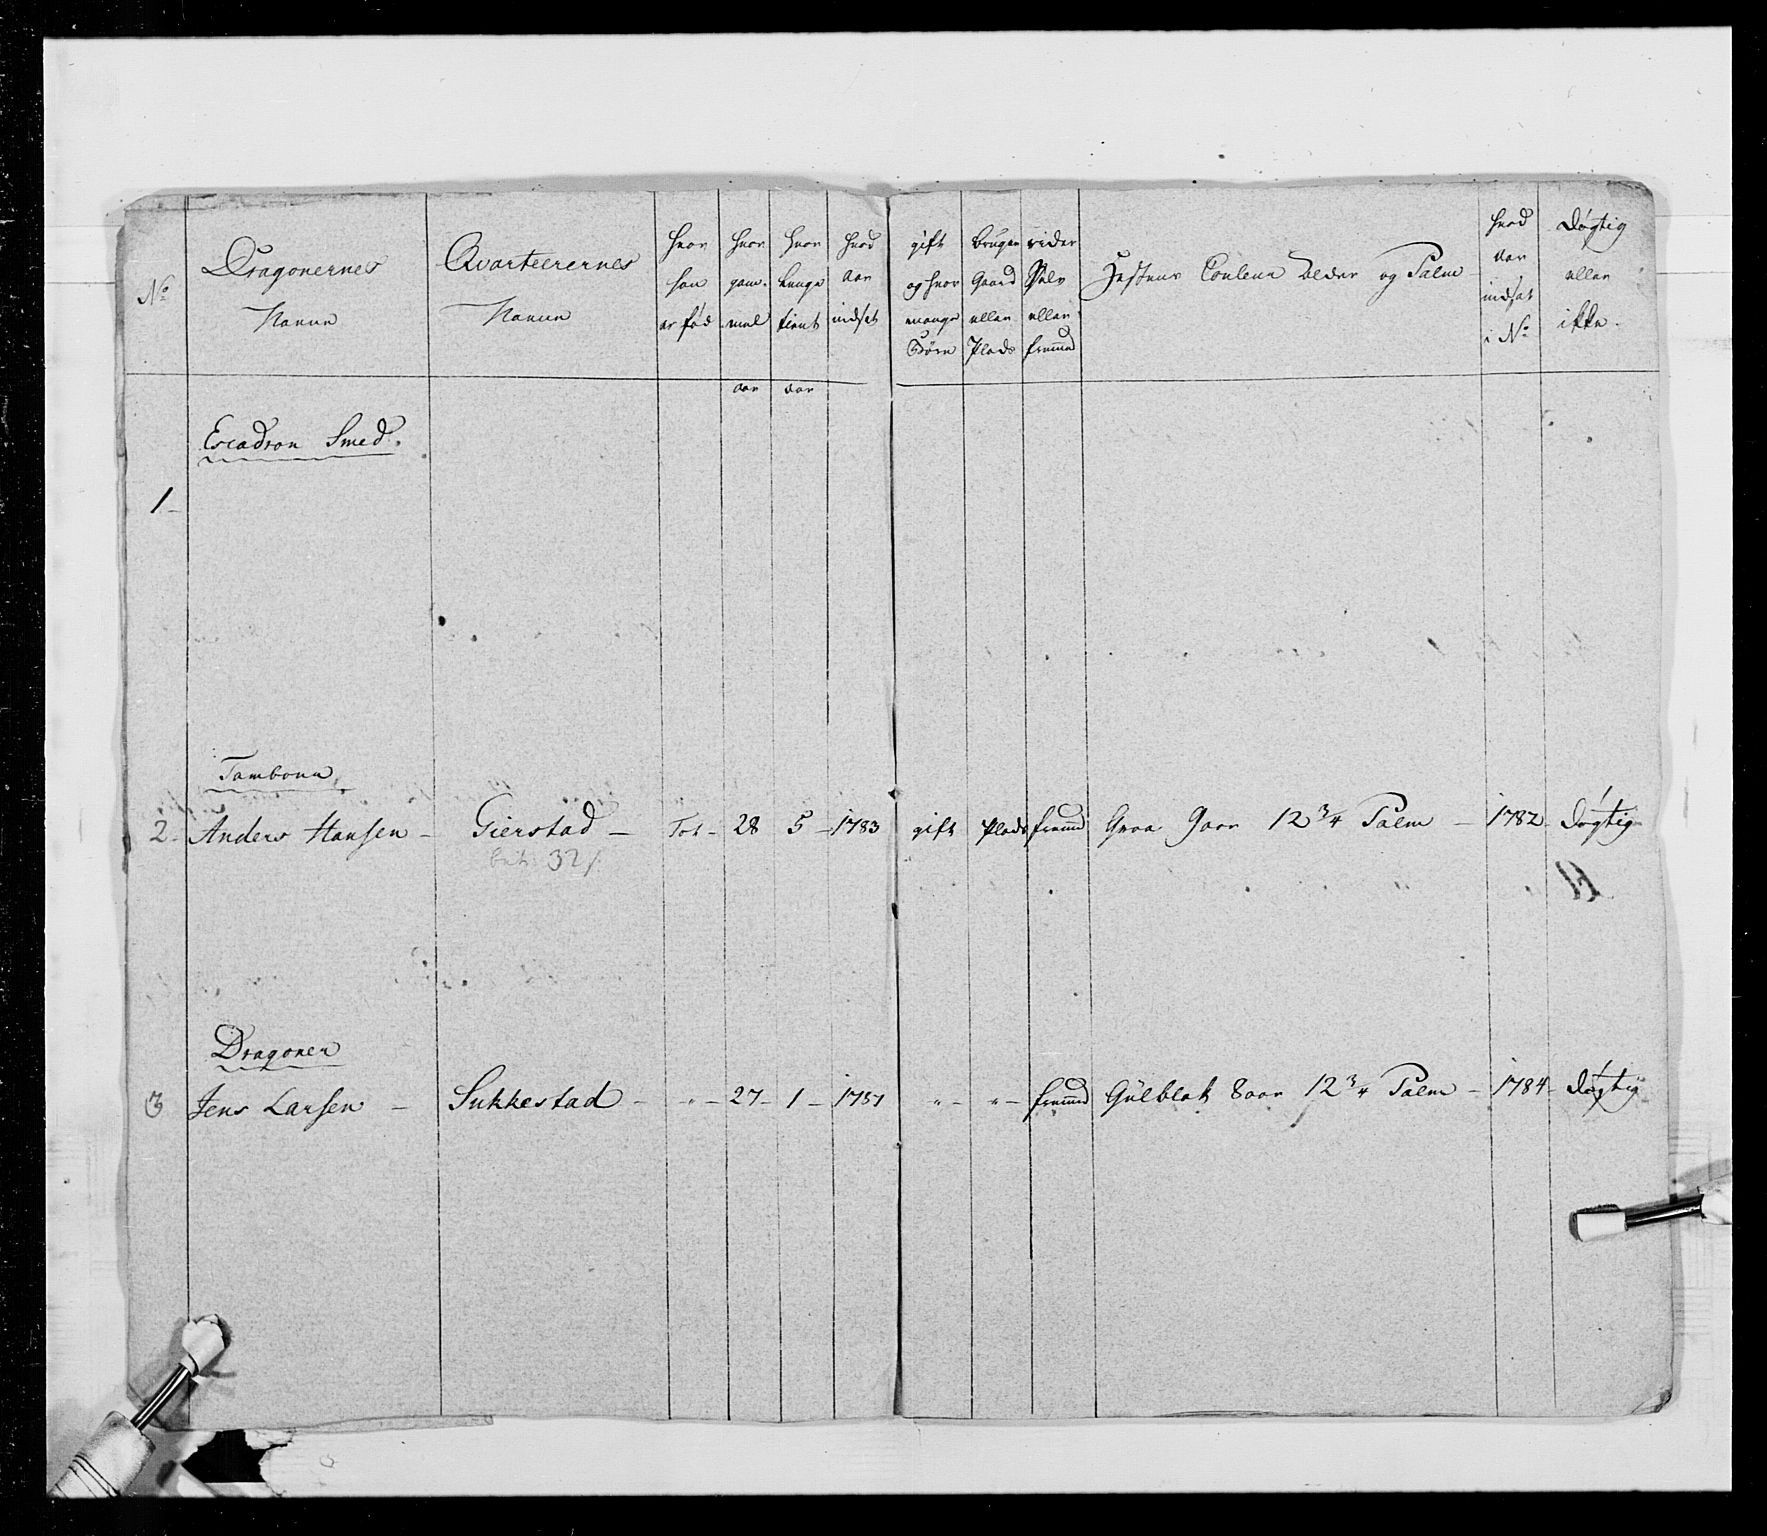 No | Dragonernes Navne | Qvarteerernes Navne | hvor han er fød | hvor gam- mel aar | hvor lenge tient aar | hvad aar indsat | gift og hvor mange Børn | bruger Gaard eller Plads | rider Selv eller fremmed | Hestens Couleur Alder og Palm | hvad aar indsat i No | døgtig eller ikke.
Escadron Smed.
1
Tambour
2 Anders Hansen – Gierstad – Tot – 28 5 – 1783 gift Plads fremmed Graa 9 aar 12 3/4 Palm – 1782 døgtig
32
Dragoner
3 Jens Larsen – Sukkestad – " – 27 – 1 – 1787 " – " – fremmed Gulblak 8 aar 12 3/4 Palm – 1784 døgtig